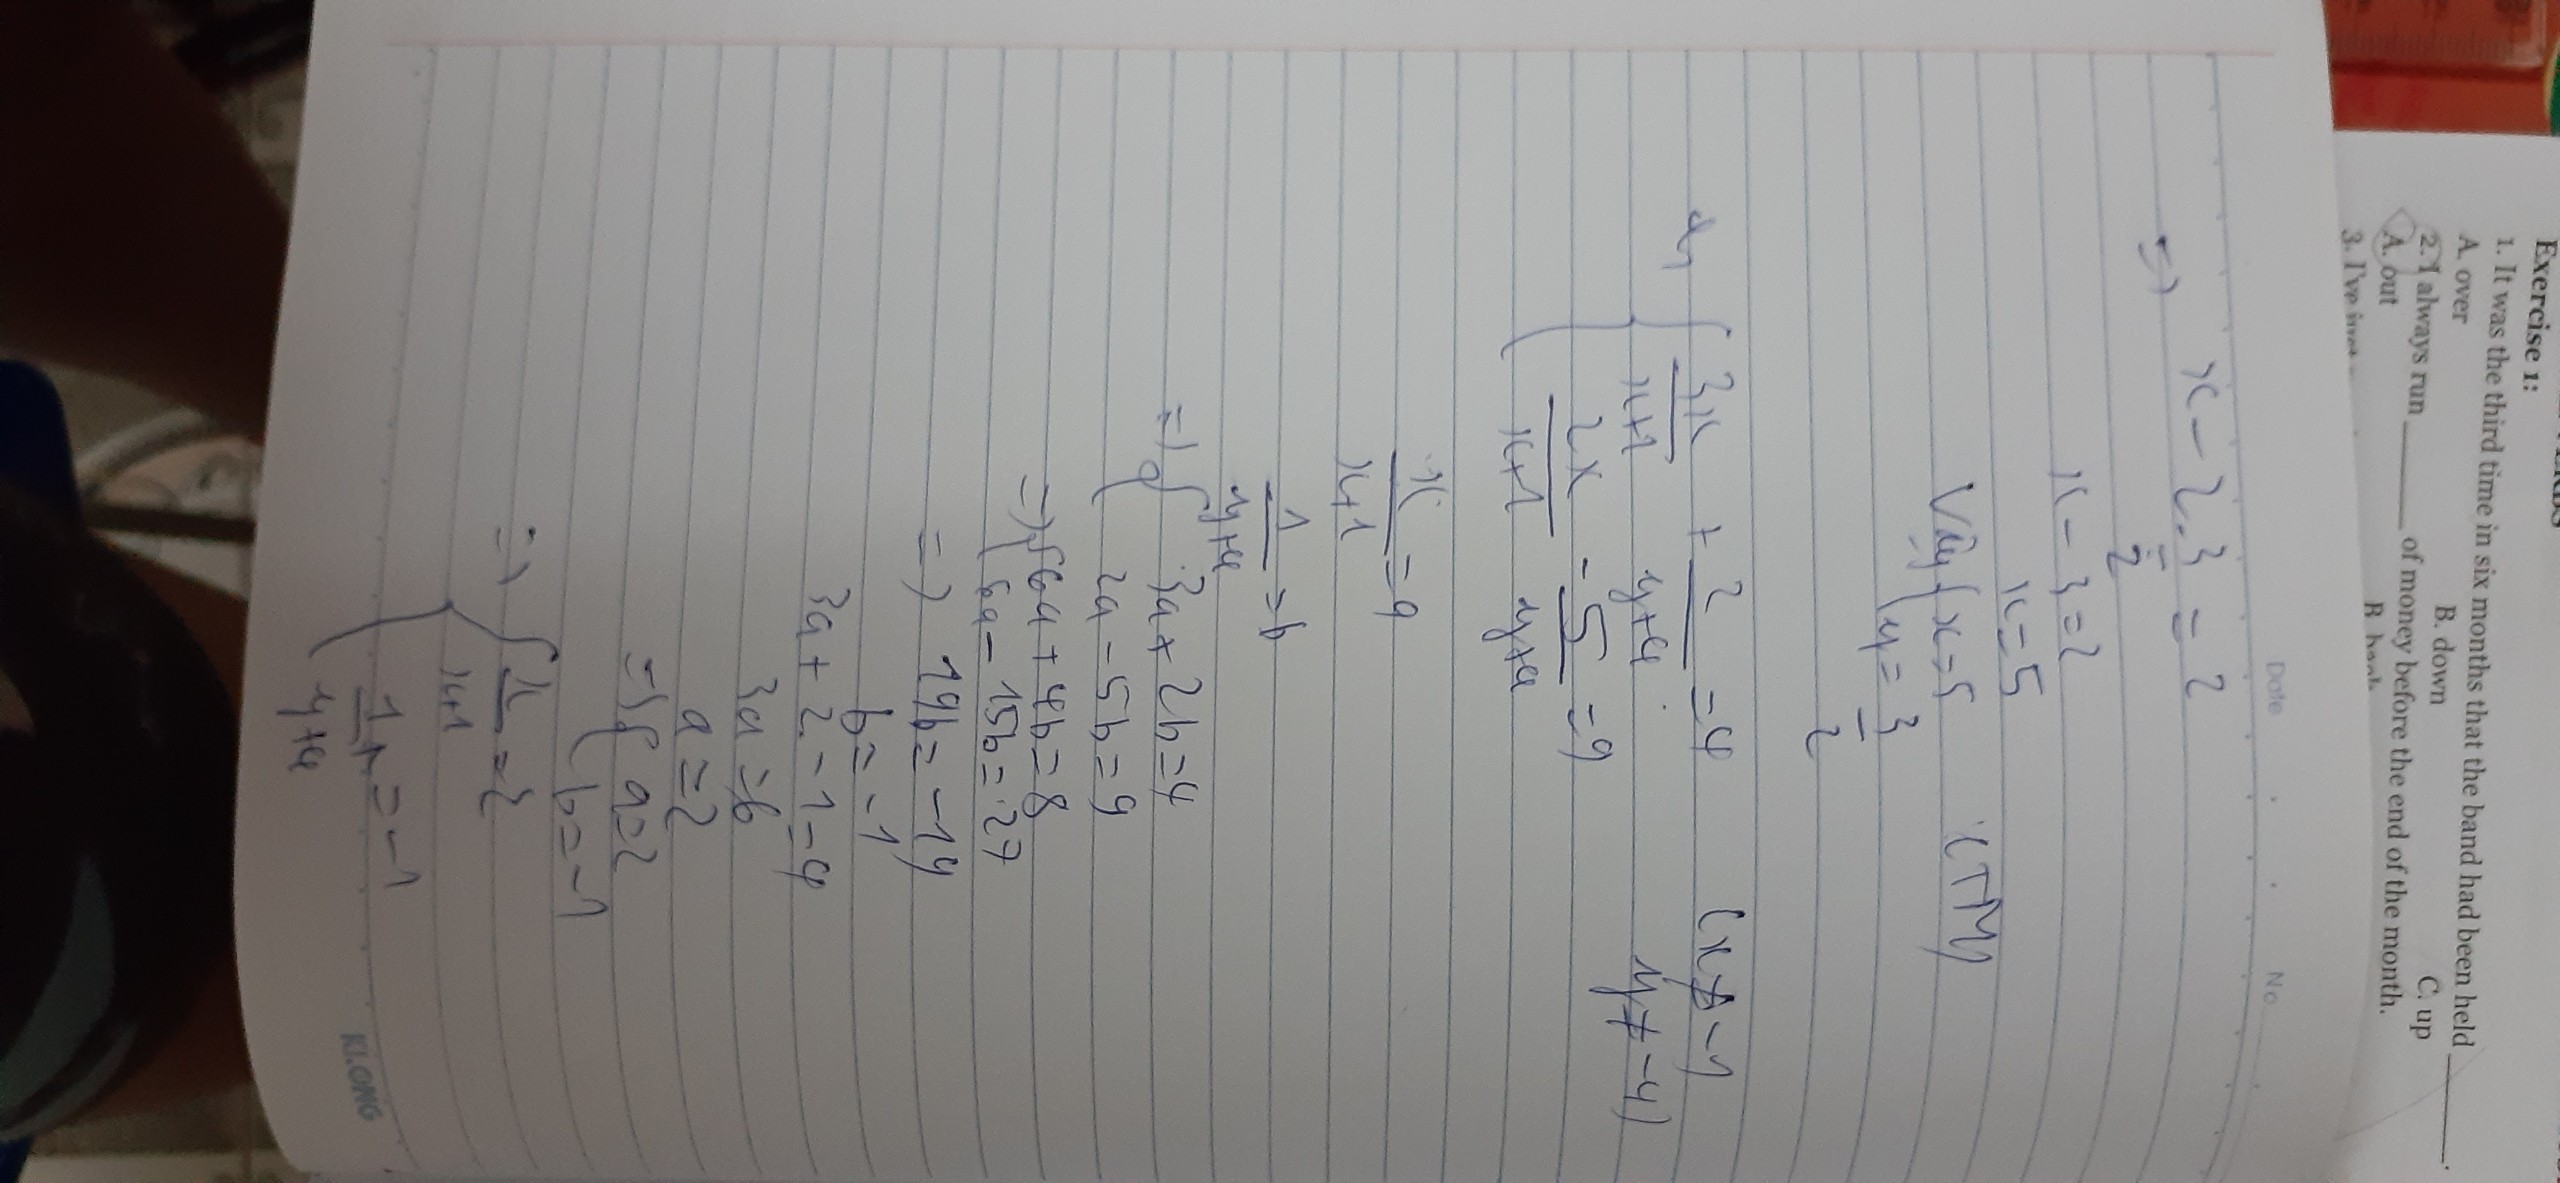 Exercise 1:
1. It was the third time in six months that the band had been held ______.
A. over B. down C. up
2. I always run ______ of money before the end of the month.
A. out B. back
3. I've
Date . . No
=) x - 2.3/2 = 2
x - 3 = 2
x = 5
Vậy { x = 5 (TM)
y = 3/2
d) { 3x/(x+1) + 2/(y+4) = 4 (x ≠ -1
2x/(x+1) - 5/(y+4) = 9 y ≠ -4)
x/(x+1) = a
1/(y+4) = b
=) { 3a + 2b = 4
2a - 5b = 9
=) { 6a + 4b = 8
6a - 15b = 27
=) 19b = -19
b = -1
3a + 2 - 1 = 4
3a = 6
a = 2
=) { a = 2
b = -1
=) { x/(x+1) = 2
1/(y+4) = -1
KLONG